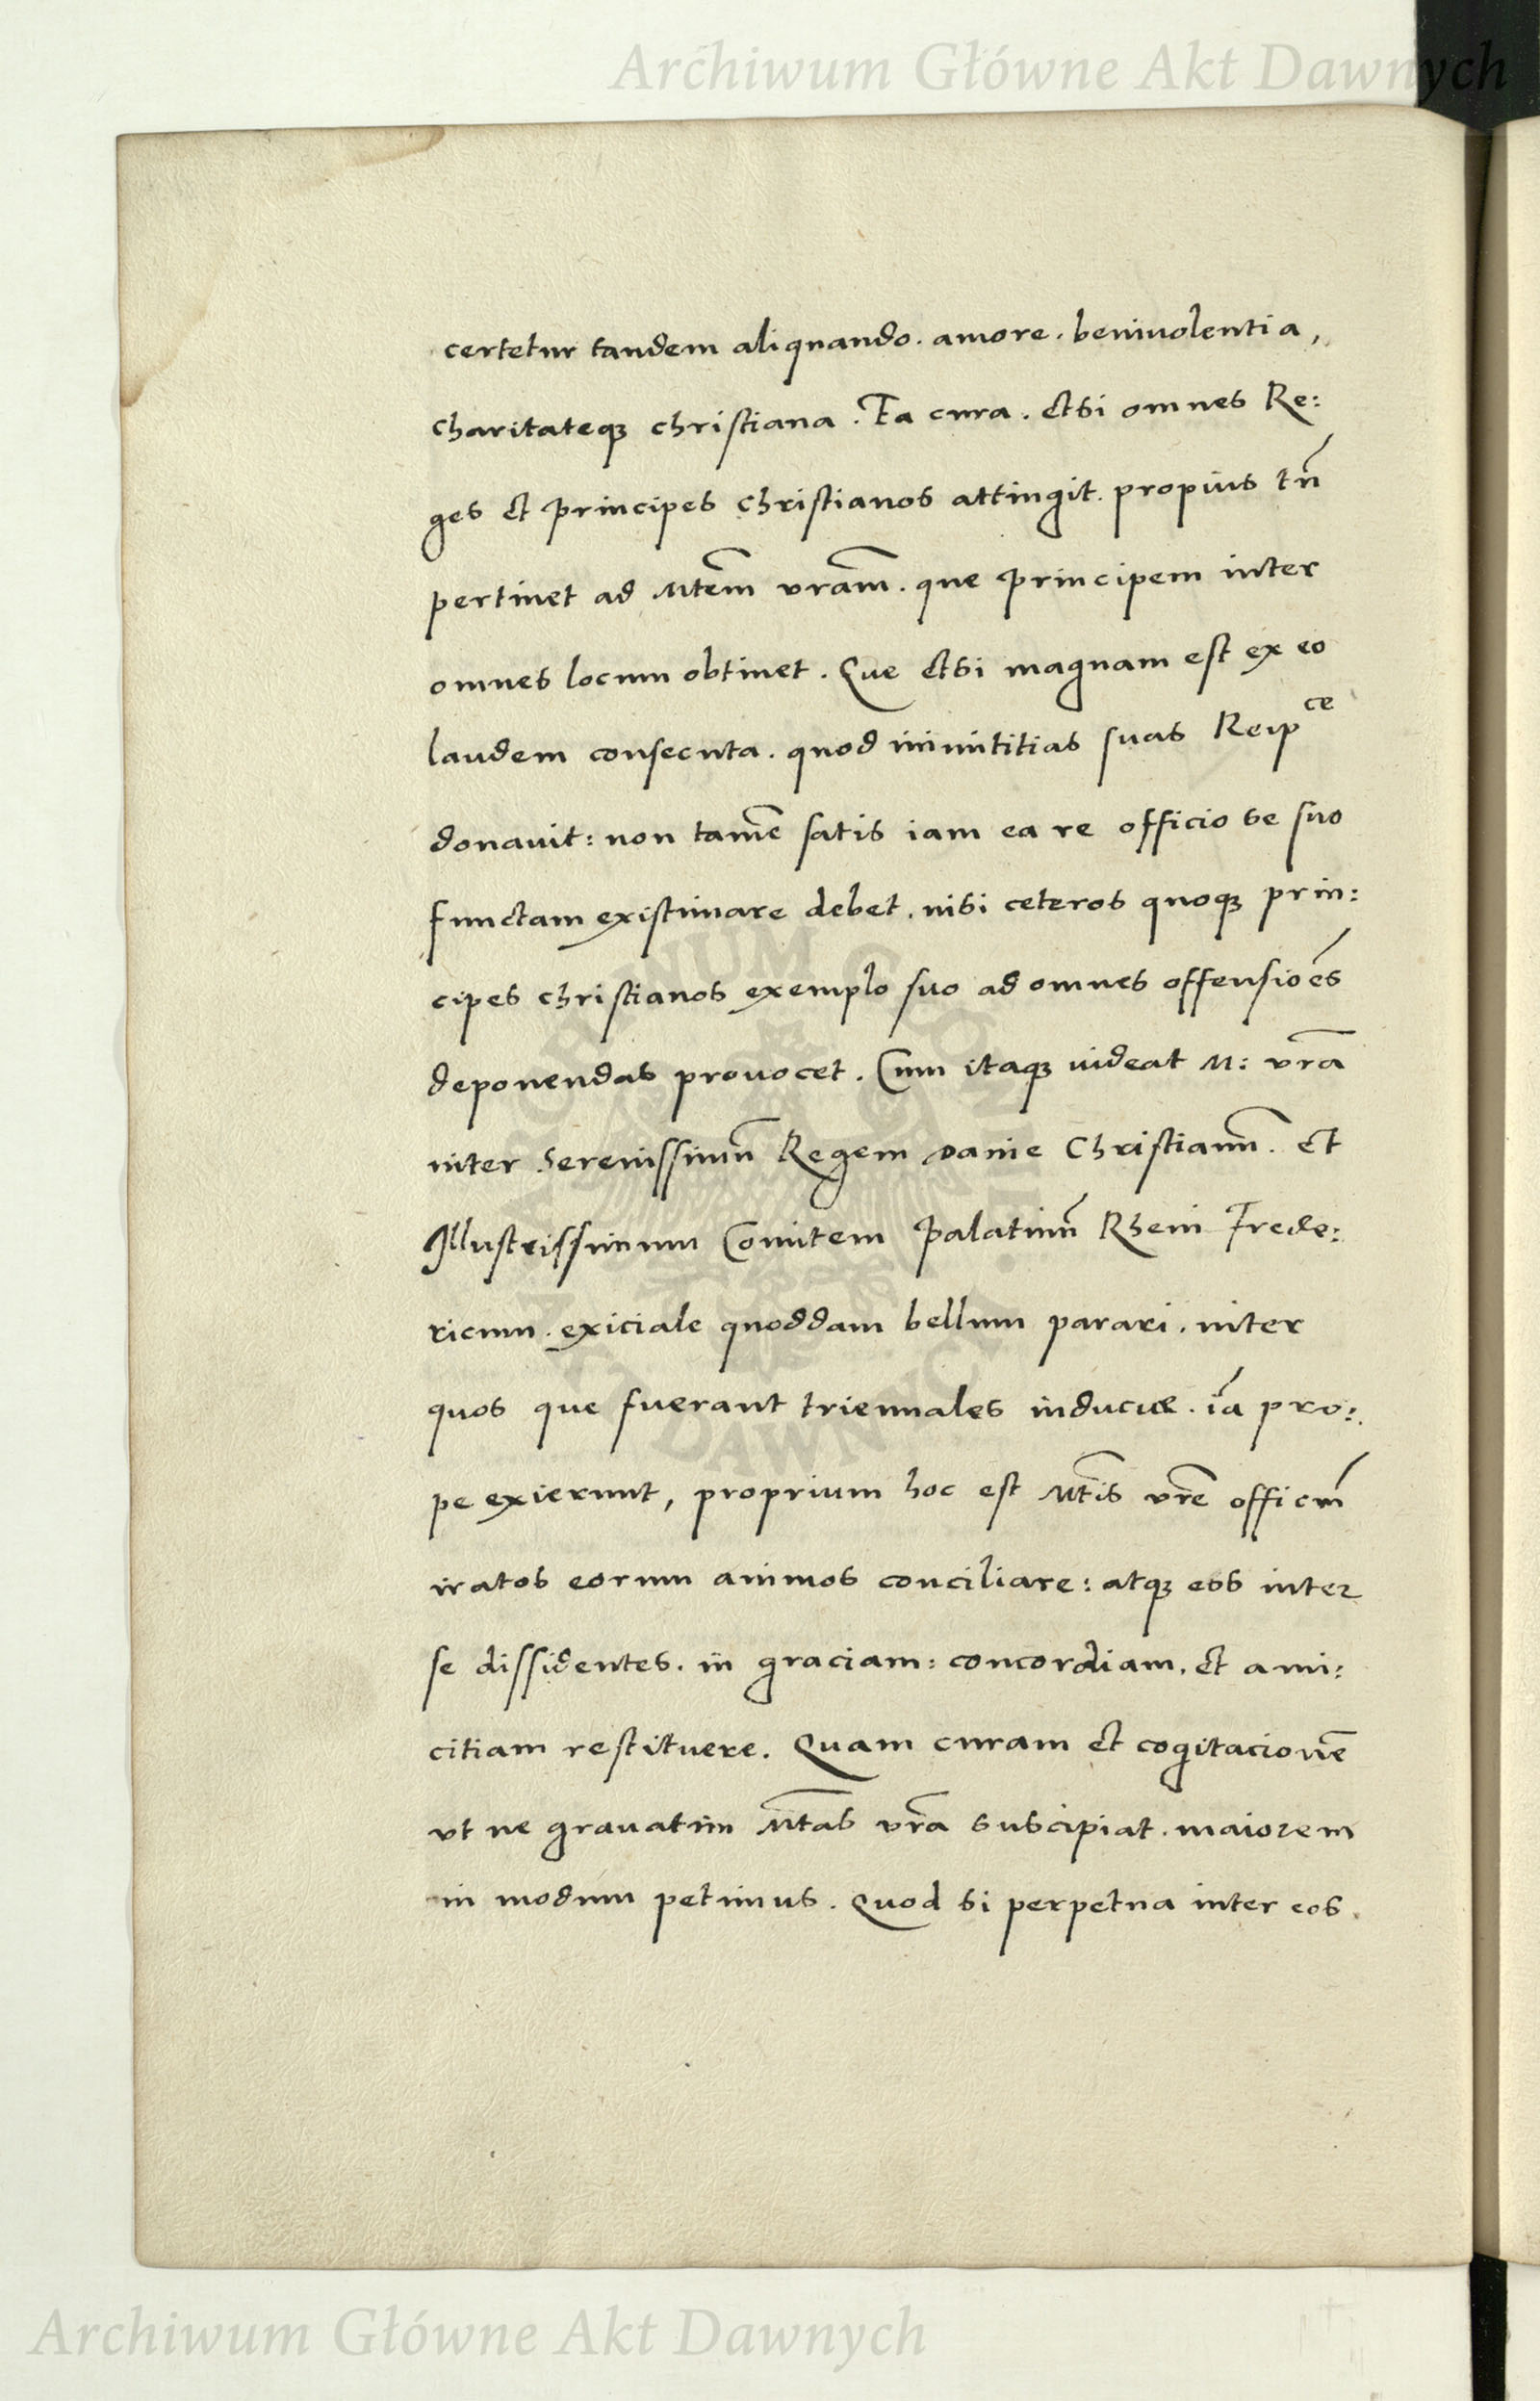 Archiwum Główne Akt Dawnych
certetur tandem aliquando. amore. beniuolentia,
charitateqꝫ christiana. Ea cura. Etsi omnes Re:
ges et principes christianos attingit. propius tn̄
pertinet ad Mtem̄ vram̄. que principem inter
omnes locum obtinet. Que etsi magnam est ex eo
laudem consecuta. quod inimititias suas Reipce
donauit: non tamē satis iam ea re officio se suo
functam existimare debet. nisi ceteros quoqꝫ prin:
cipes christianos exemplo suo ad omnes offensioēs
deponendas prouocet. Cum itaqꝫ videat M: vrā
inter Serenissimū Regem Danie Christianū. Et
Illustrissimum Comitem Palatinū Rheni Frede:
ricum. exiciale quoddam bellum parari. inter
quos que fuerant triennales induciæ. iā pro:
pe exierunt, proprium hoc est Mtīs vrē officiū
iratos eorum animos conciliare: atqꝫ eos inter
se dissidentes. in graciam: concordiam. et ami:
citiam restituere. Quam curam et cogitacionē
vt ne grauatim Mtās vrā suscipiat. maiorem
in modum petimus. Quod si perpetua inter eos.
ARCHIWUM GŁÓWNE AKT DAWNYCH
Archiwum Główne Akt Dawnych